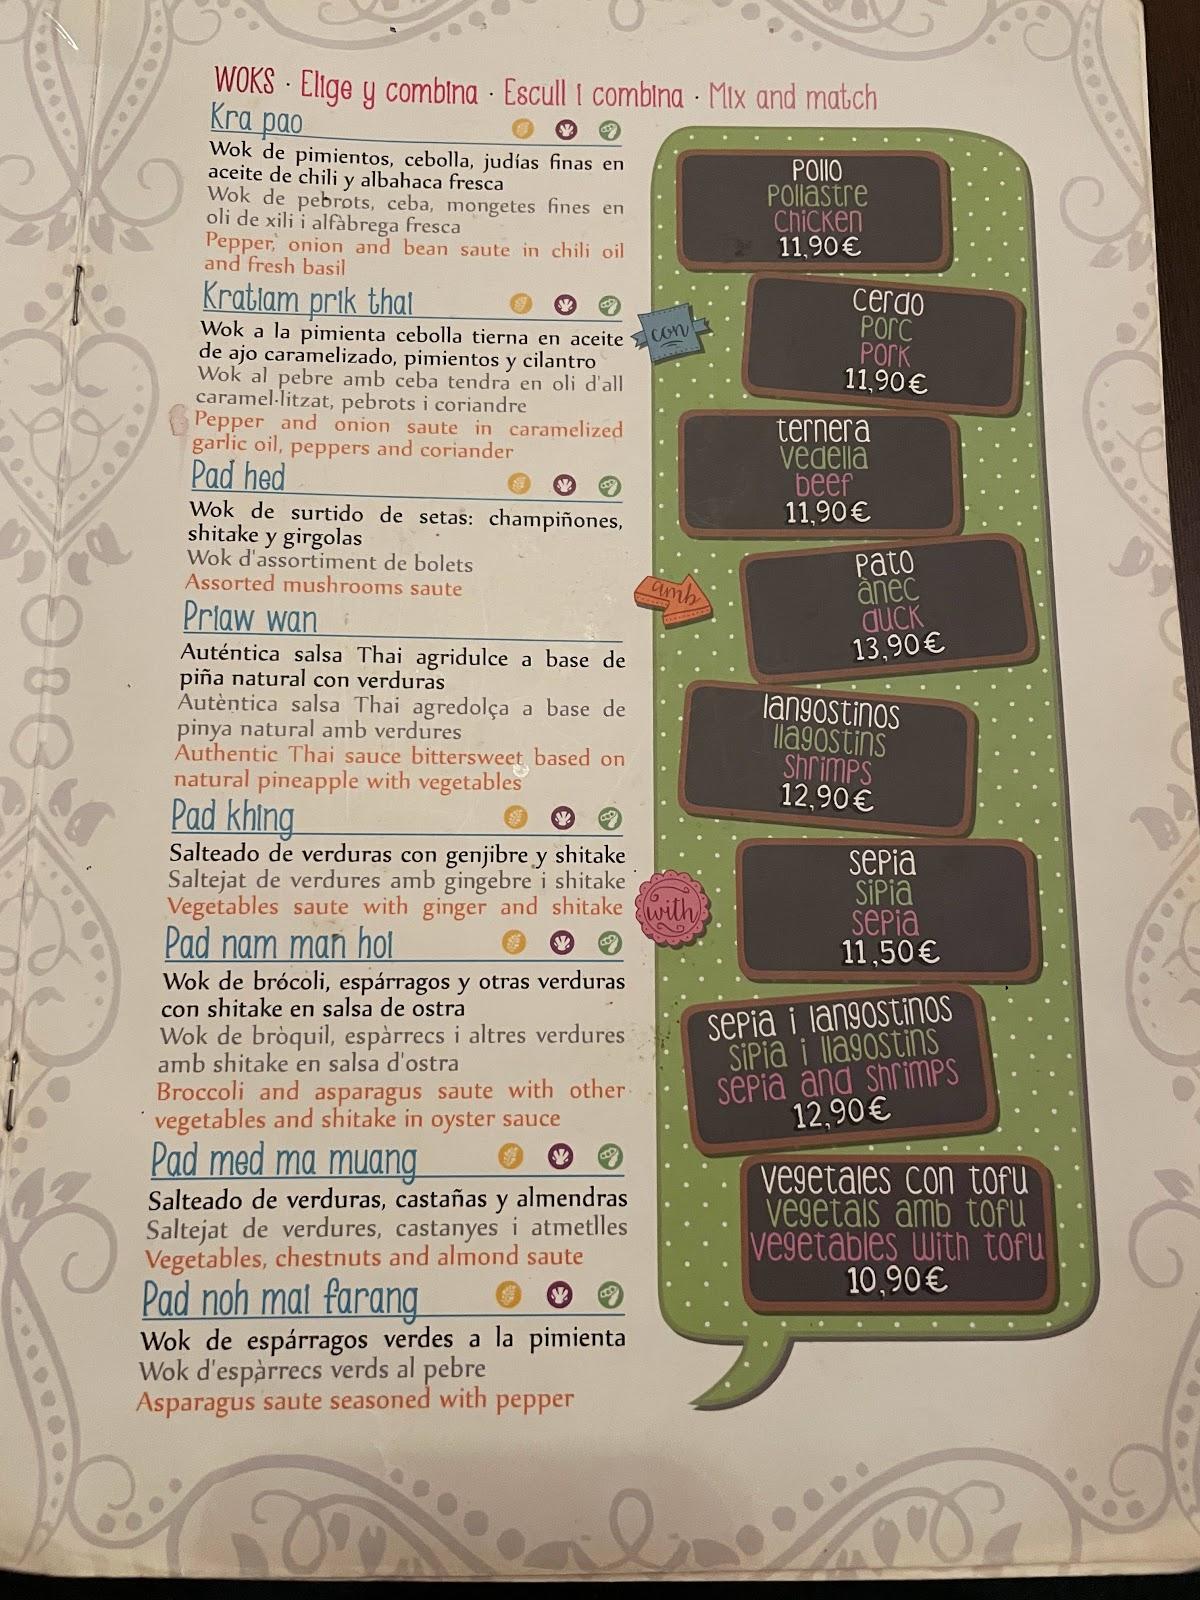 WOKS · Elige y combina · Escull i combina · Mix and match
Kra pao
Wok de pimientos, cebolla, judías finas en
aceite de chili y albahaca fresca
Wok de pebrots, ceba, mongetes fines en
oli de xili i alfàbrega fresca
Pepper, onion and bean saute in chili oil
and fresh basil
Kratiam prik thai
Wok a la pimienta cebolla tierna en aceite
de ajo caramelizado, pimientos y cilantro
Wok al pebre amb ceba tendra en oli d'all
caramel·litzat, pebrots i coriandre
Pepper and onion saute in caramelized
garlic oil, peppers and coriander
Pad hed
Wok de surtido de setas: champiñones,
shitake y girgolas
Wok d'assortiment de bolets
Assorted mushrooms saute
Priaw wan
Auténtica salsa Thai agridulce a base de
piña natural con verduras
Autèntica salsa Thai agredolça a base de
pinya natural amb verdures
Authentic Thai sauce bittersweet based on
natural pineapple with vegetables
Pad khing
Salteado de verduras con genjibre y shitake
Saltejat de verdures amb gingebre i shitake
Vegetables saute with ginger and shitake
Pad nam man hoi
Wok de brócoli, espárragos y otras verduras
con shitake en salsa de ostra
Wok de bròquil, espàrrecs i altres verdures
amb shitake en salsa d'ostra
Broccoli and asparagus saute with other
vegetables and shitake in oyster sauce
Pad med ma muang
Salteado de verduras, castañas y almendras
Saltejat de verdures, castanyes i atmetlles
Vegetables, chestnuts and almond saute
Pad noh mai farang
Wok de espárragos verdes a la pimienta
Wok d'espàrrecs verds al pebre
Asparagus saute seasoned with pepper
con
amb
with
pollo
pollastre
chicken
11,90€
cerdo
porc
pork
11,90€
ternera
vedella
beef
11,90€
pato
ànec
duck
13,90€
langostinos
llagostins
shrimps
12,90€
sepia
sipia
sepia
11,50€
sepia i langostinos
sipia i llagostins
sepia and shrimps
12,90€
vegetales con tofu
vegetals amb tofu
vegetables with tofu
10,90€